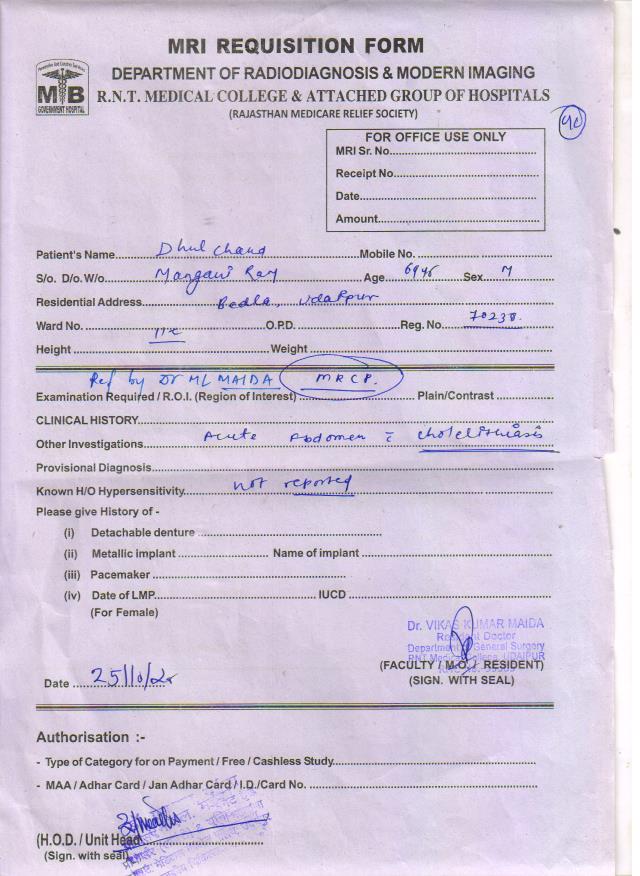 MRI REQUISITION FORM
DEPARTMENT OF RADIODIAGNOSIS & MODERN IMAGING
R.N.T. MEDICAL COLLEGE & ATTACHED GROUP OF HOSPITALS
(RAJASTHAN MEDICARE RELIEF SOCIETY)
MB
GOVERNMENT HOSPITAL
FOR OFFICE USE ONLY
MRI Sr. No.
Receipt No.
Date
Amount
Patient's Name Dhul Chand Mobile No.
S/o. D/o. W/o Age Sex M
Residential Address Bedla, Udaipur
Ward No. 11c O.P.D. Reg. No. 70238
Height Weight
Ref by Dr ML MAIDA MRCP.
Examination Required / R.O.I. (Region of Interest) Plain/Contrast
CLINICAL HISTORY
Other Investigations Acute Abdomen c̄ cholelithiasis
Provisional Diagnosis
Known H/O Hypersensitivity not reported
Please give History of -
(i) Detachable denture
(ii) Metallic implant Name of implant
(iii) Pacemaker
(iv) Date of LMP IUCD
(For Female)
Dr. VIKAS KUMAR MAIDA
Resident Doctor
Department of General Surgery
RNT Medical College, UDAIPUR
(FACULTY / M.O. / RESIDENT)
(SIGN. WITH SEAL)
Date 25/10/25
Authorisation :-
- Type of Category for on Payment / Free / Cashless Study
- MAA / Adhar Card / Jan Adhar Card / I.D./Card No.
(H.O.D. / Unit Head
(Sign. with seal)